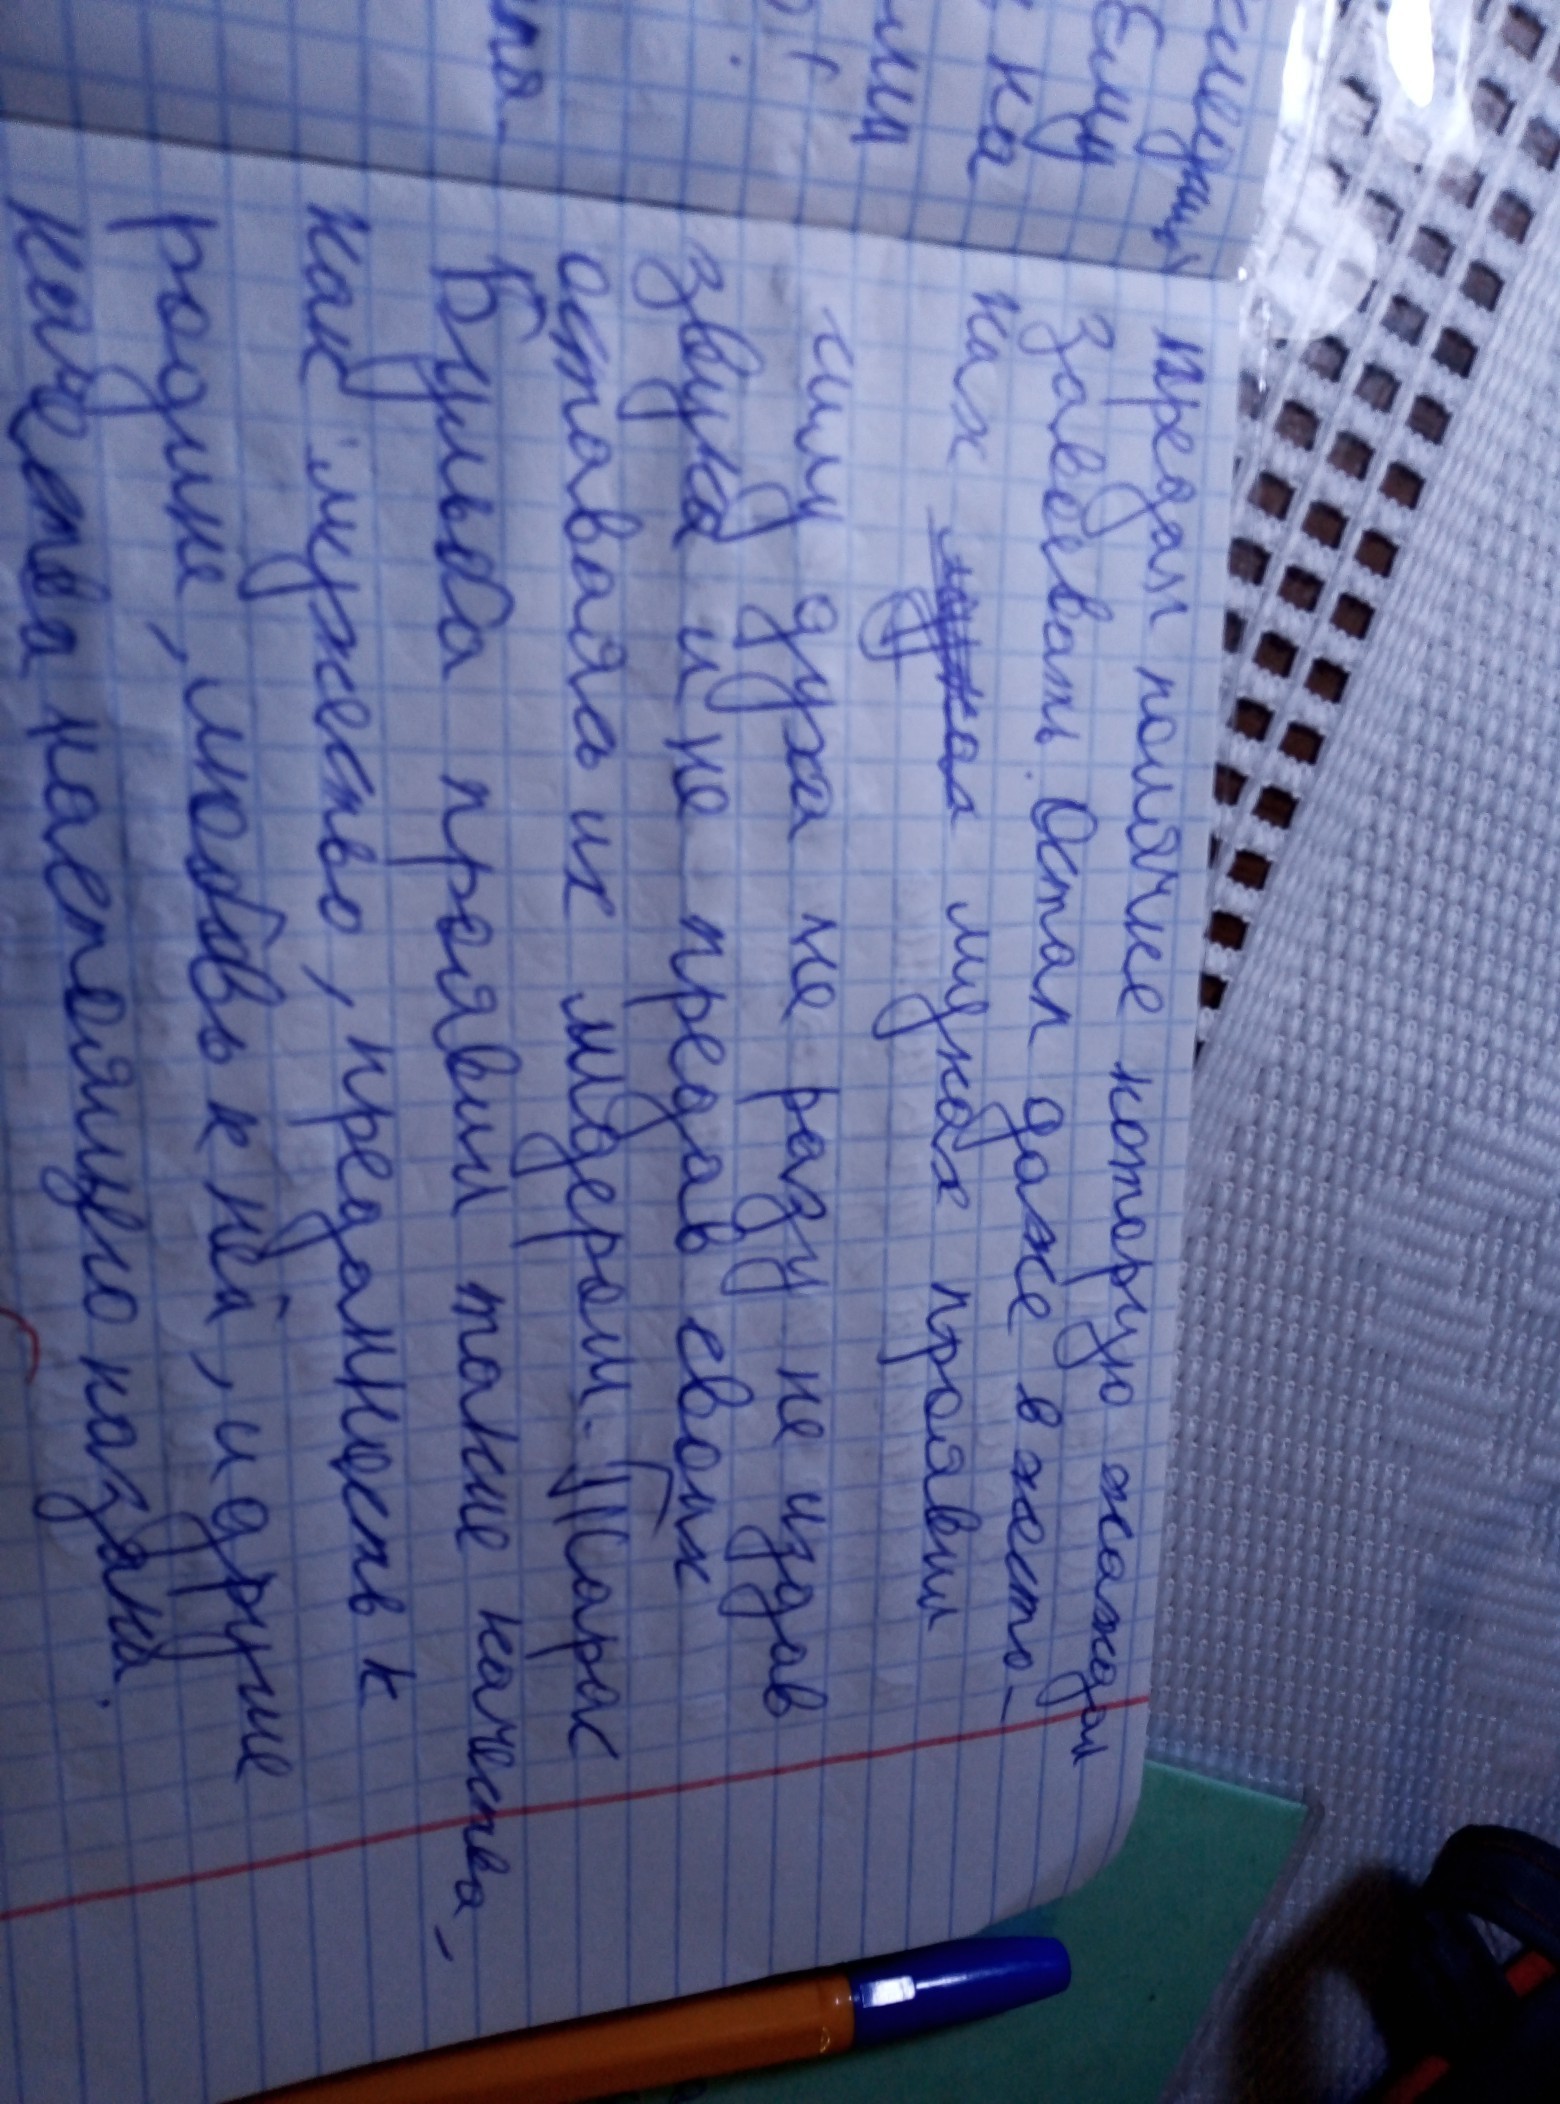 Ему
на
предал полячке которую жаждал
завоевать. Остап даже в жесто-
ких муках проявил
силу духа не разу не издав
звука и не предав своих
оставаясь их лидером. Тарас
Бульба проявил такие качества,
как мужество, преданность к
родине, любовь к ней, и другие
качества настоящего казака.